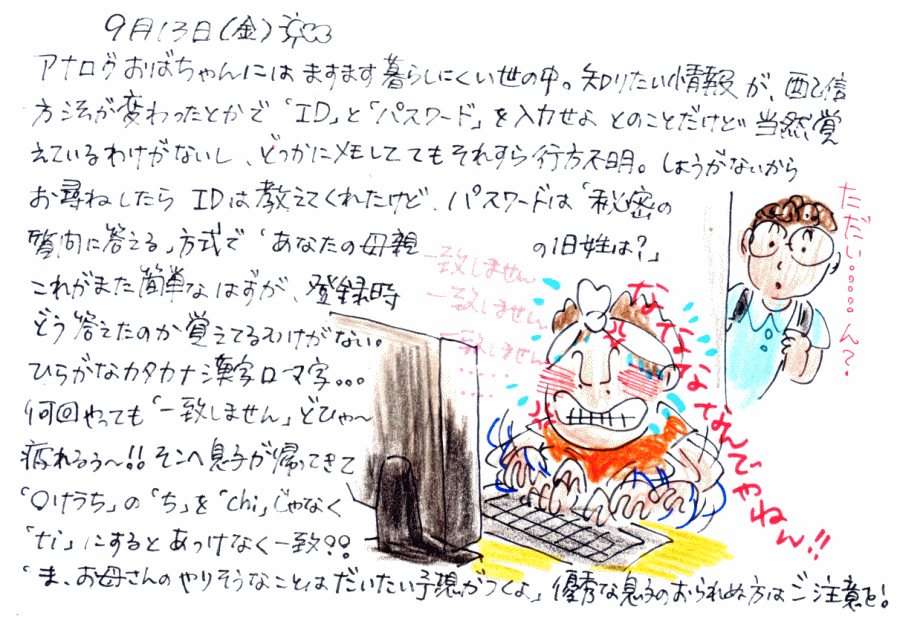 9月13日(金)
アナログおばちゃんにはますます暮らしにくい世の中。知りたい情報が、配信
方法が変わったとかで「ID」と「パスワード」を入力せよとのことだけど当然覚
えているわけがないし、どっかにメモしててもそれすら行方不明。しょうがないから
お尋ねしたらIDは教えてくれたけど、パスワードは「秘密の
質問に答える」方式で「あなたの母親の旧姓は?」
これがまた簡単なはずが、登録時
どう答えたのか覚えてるわけがない。
ひらがなカタカナ漢字ローマ字...
何回やっても「一致しません」どひゃ〜
疲れるぅ〜!!そこへ息子が帰ってきて
「〇けうち」の「ち」を「chi」じゃなく
「ti」にするとあっけなく一致??
「ま、お母さんのやりそうなことはだいたい予想がつくよ」優秀な息子のおられぬ方はご注意を!
一致しません
一致しません
一致しません
......
.....
なななななんでやねん!!
ただい。。。。。ん?